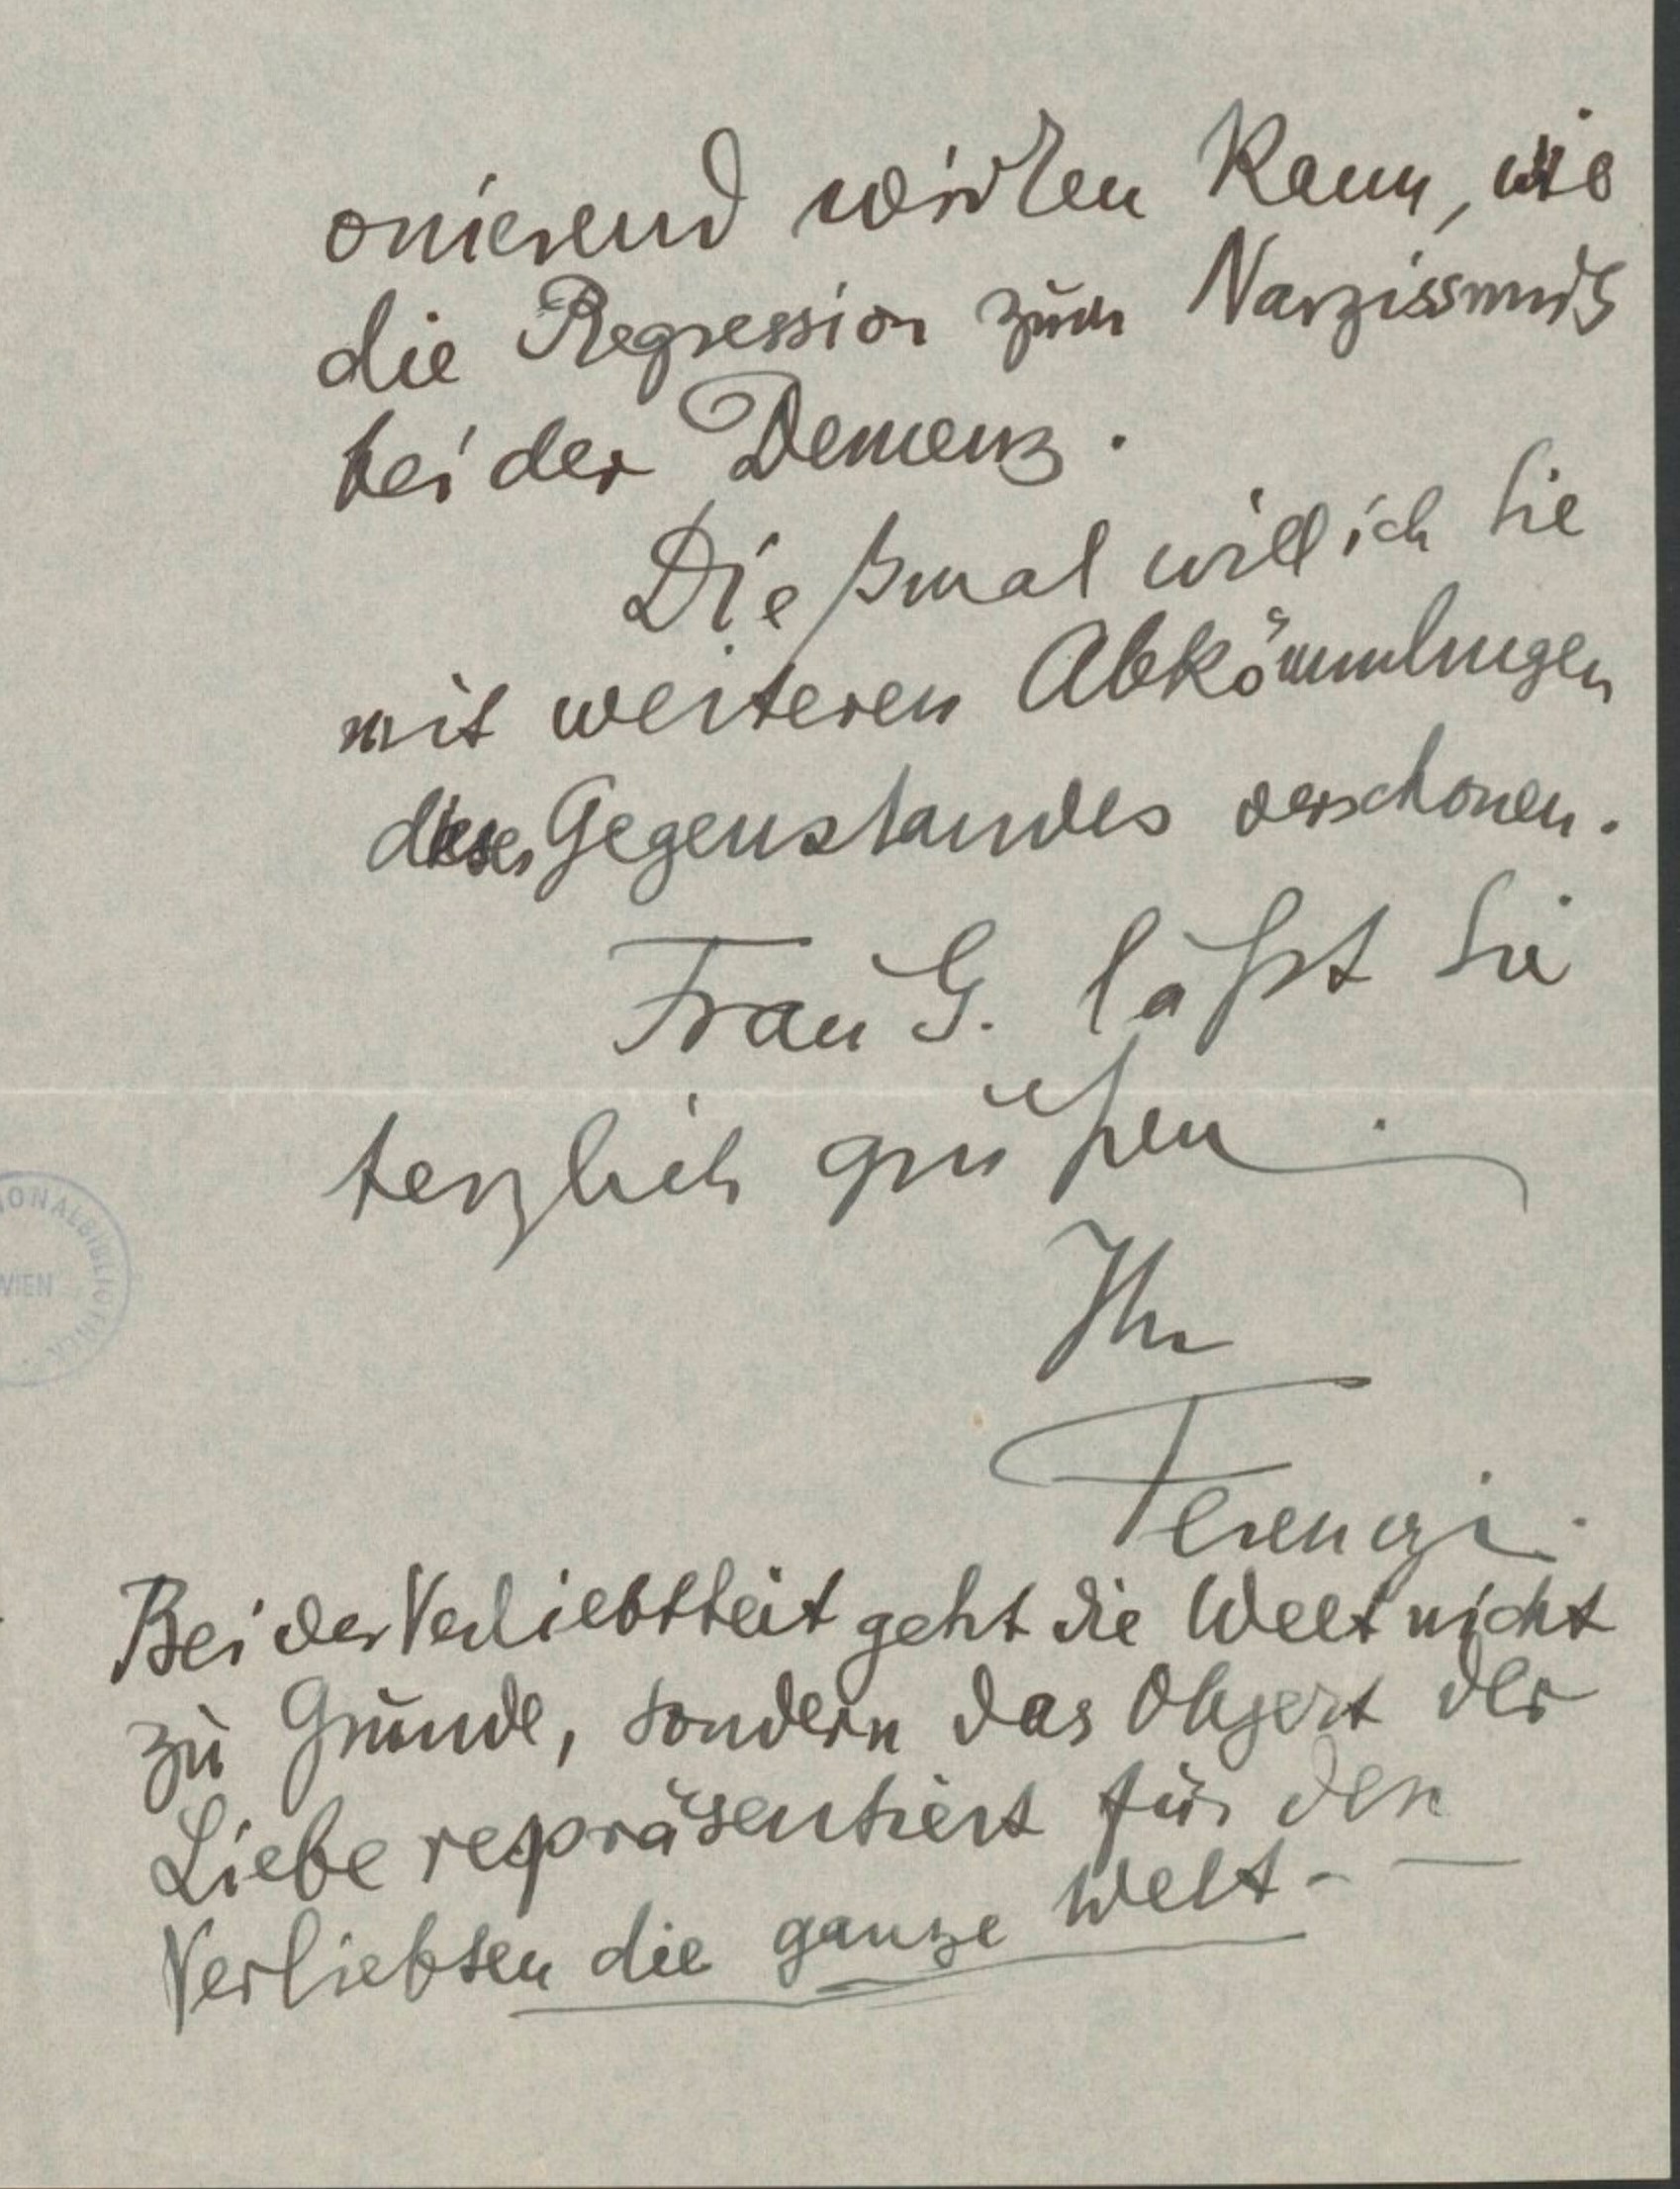 onierend wirken kann, wie
die Regression zum Narzissmus
bei der Demenz.
Dießmal will ich Sie
mit weiteren Abkömmlingen
dieses Gegenstandes verschonen.
Frau G. läßt Sie
herzlich grüßen.
Ihr
Ferenczi.
Bei der Verliebtheit geht die Welt nicht
zu Grunde, sondern das Objekt der
Liebe repräsentiert für den
Verliebten die ganze Welt. —
IONALBIBLIOTHEK
WIEN